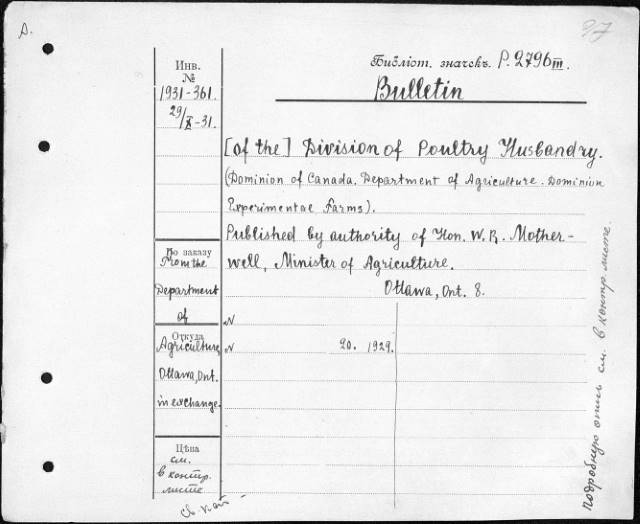 D.
27
Инв.
№
1931-361.
29/X-31.
Библіот. значекъ. P. 2796 III.
Bulletin
[of the] Division of Poultry Husbandry.
(Dominion of Canada. Department of Agriculture. Dominion
Experimental Farms).
Published by authority of Hon. W. R. Mother-
well, Minister of Agriculture.
Ottawa, Ont. 8.
По заказу
From the
Department
of
Откуда
Agriculture,
Ottawa, Ont.
in exchange.
N
N 20. 1929.
Цѣна
см.
в контр.
листе
подробную опись см. в контр. листе.